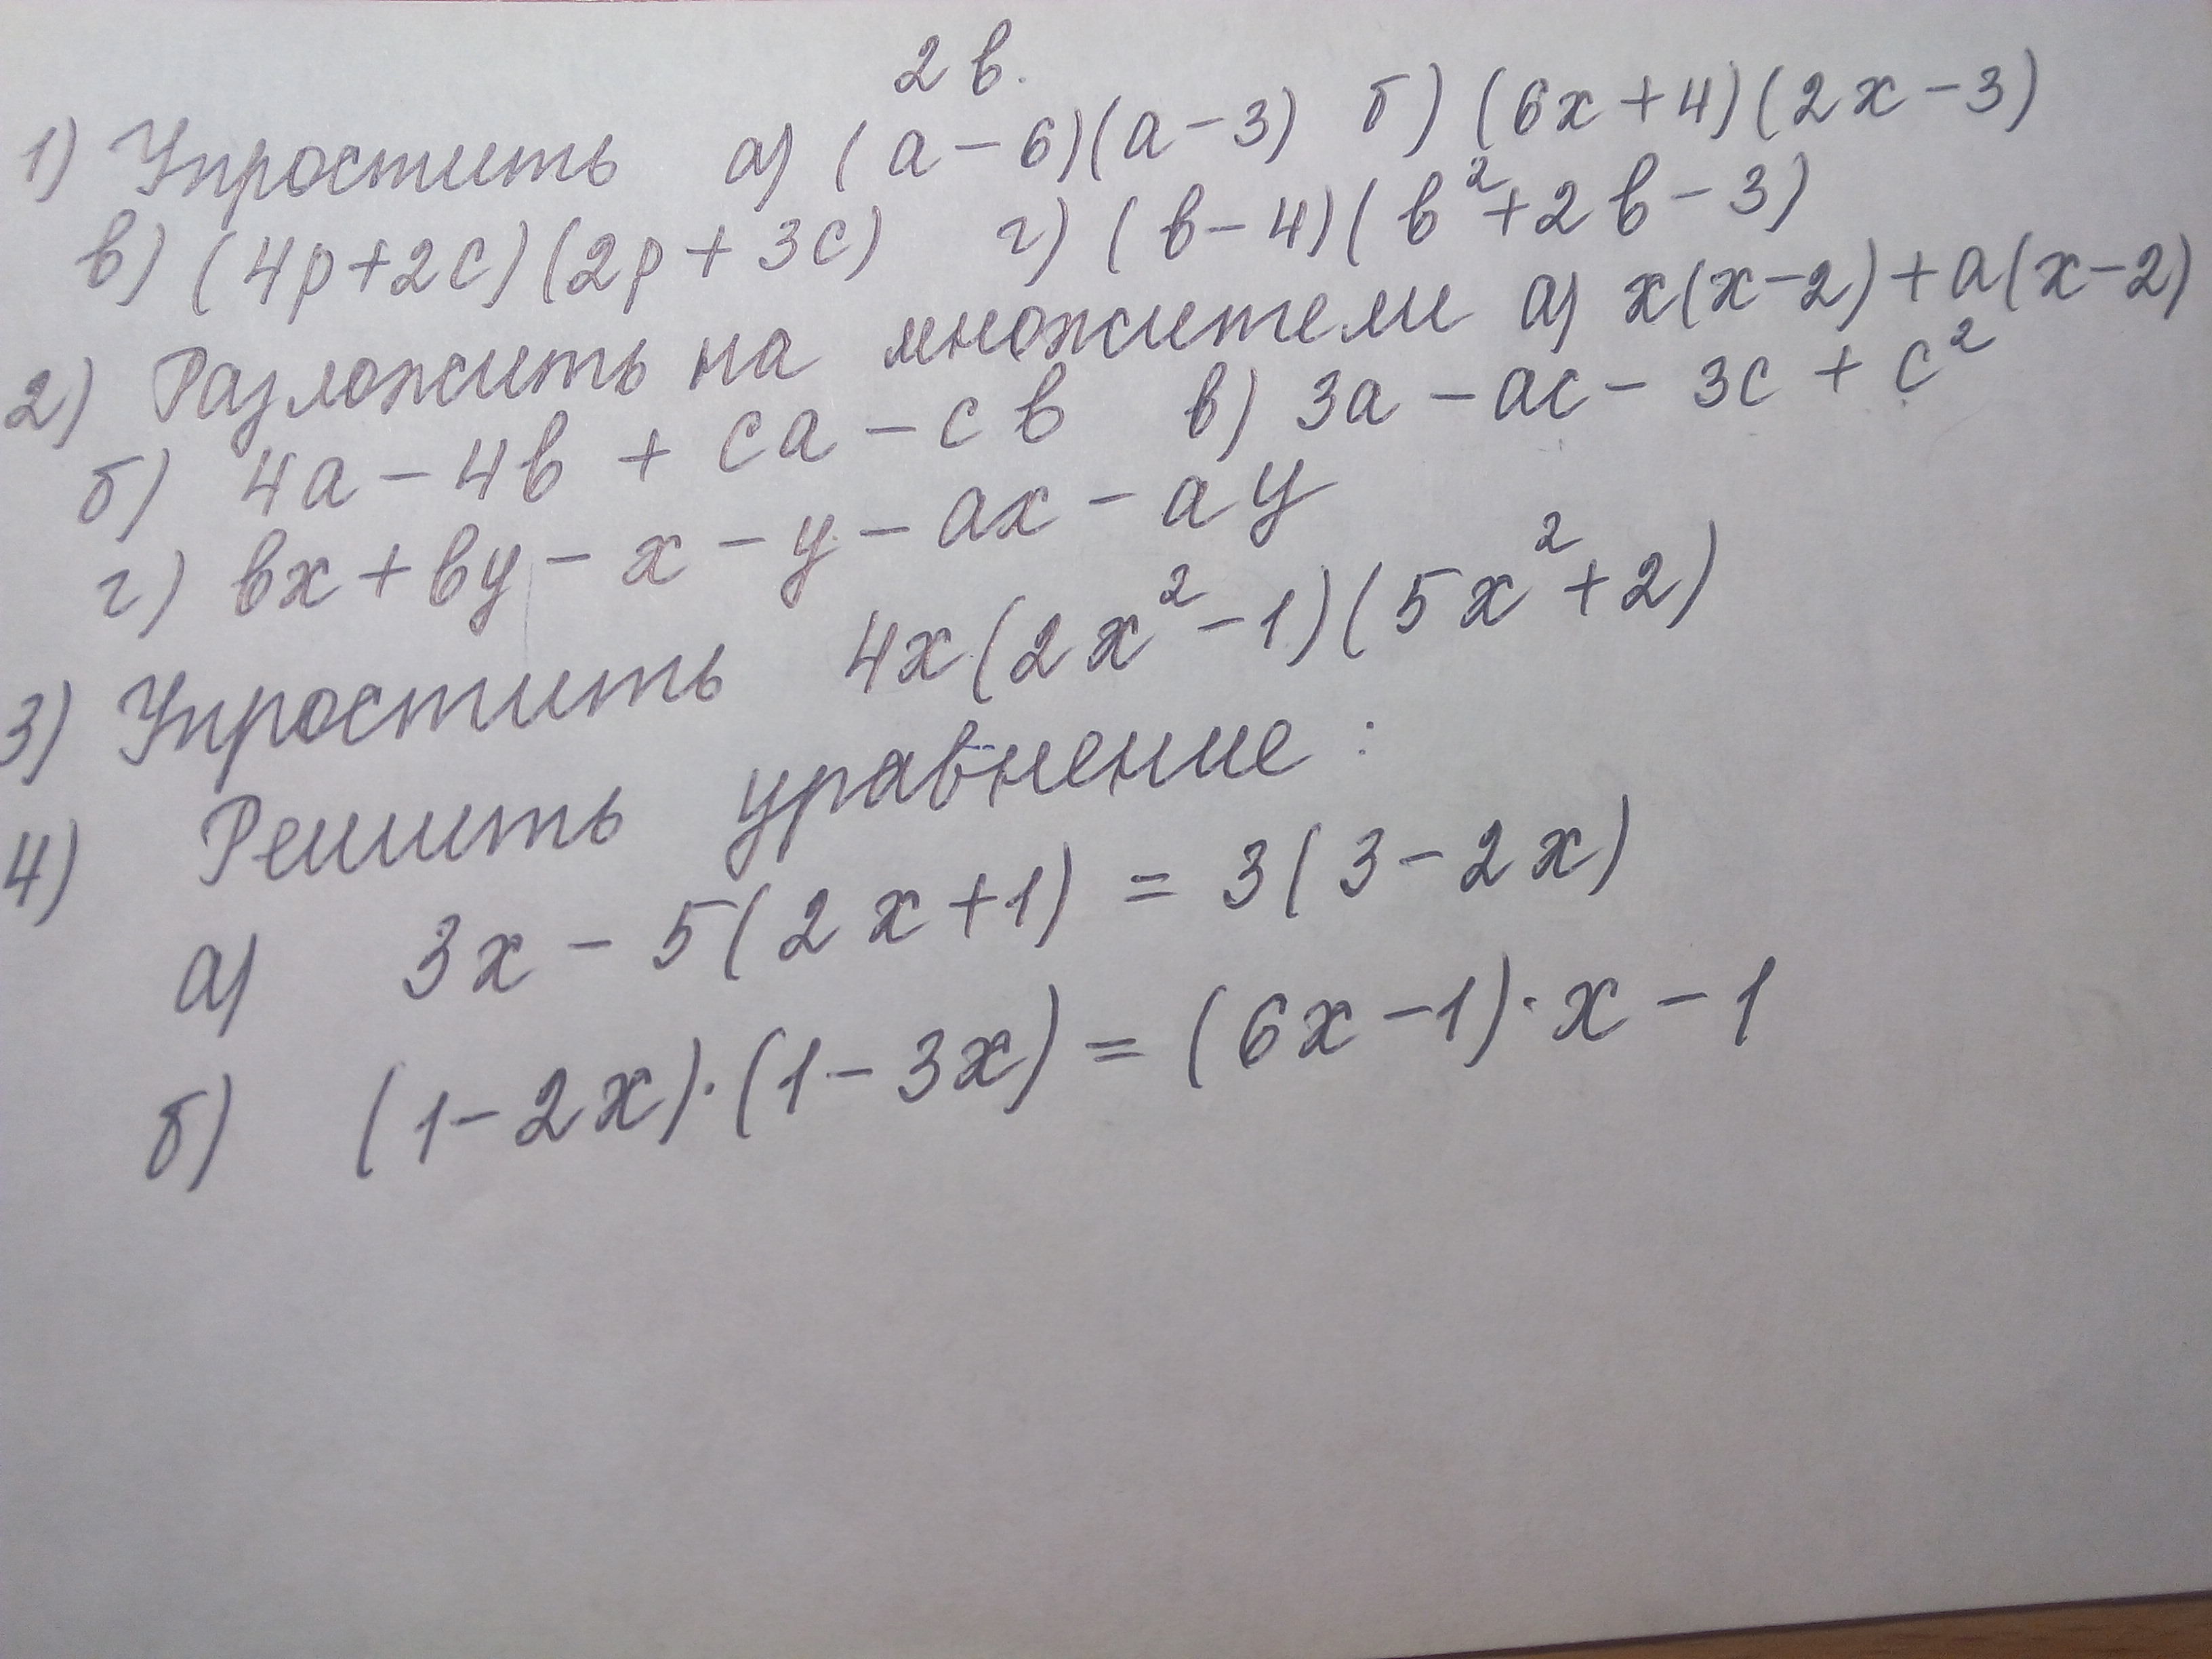 2 в.
1) Упростить а) (а - 6)(а - 3) б) (6x + 4)(2x - 3)
в) (4p + 2c)(2p + 3c) г) (в - 4)(в² + 2в - 3)
2) Разложить на множители а) x(x - 2) + a(x - 2)
б) 4a - 4в + ca - cв в) 3a - ac - 3c + c²
г) вx + вy - x - y - ax - ay
3) Упростить 4x(2x² - 1)(5x² + 2)
4) Решить уравнение:
а) 3x - 5(2x + 1) = 3(3 - 2x)
б) (1 - 2x)·(1 - 3x) = (6x - 1)·x - 1